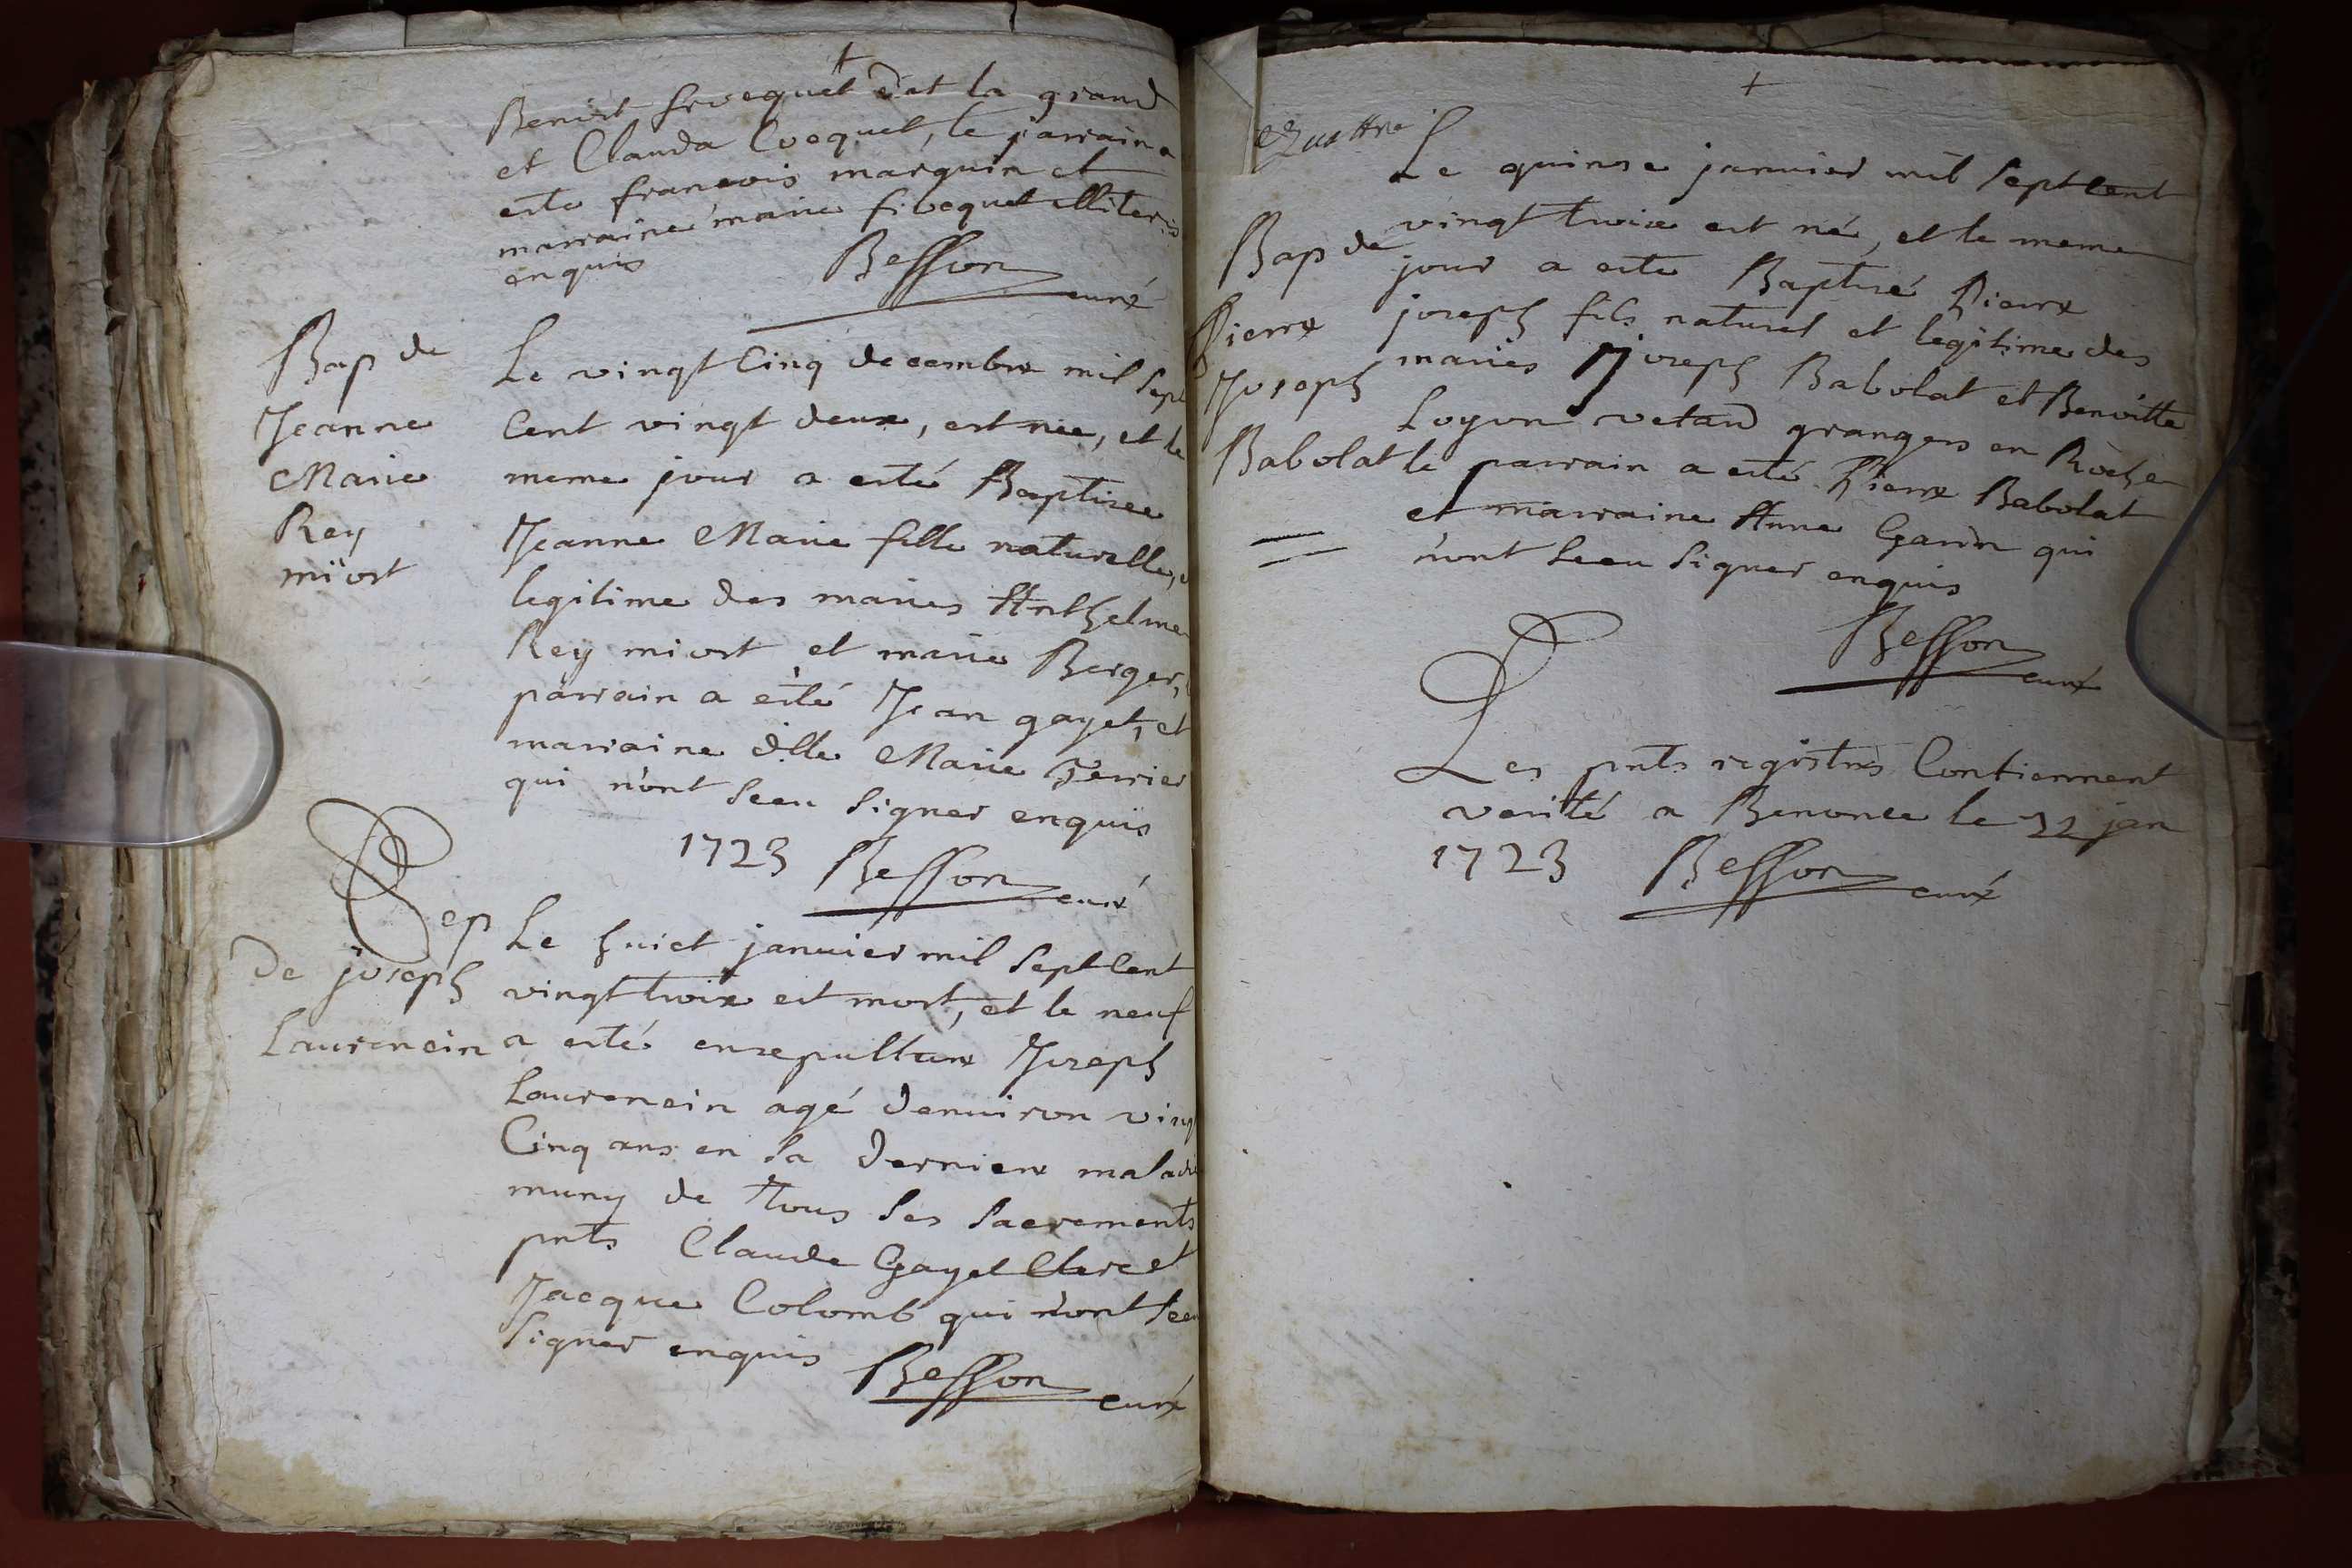 Benoist fivequet dit la grand
et Clauda Cocquet, le parrain a
esté francois marquin et
marraine marie fivequet illiteris
enquis
Besson curé
Bap de
Jeanne
Marie
Rey
miost
Le vingt Cinq decembre mil sept
Cent vingt deux, est née, et le
meme jour a esté Baptisee
Jeanne Marie fille naturelle, et
legitime des maries Anthelme
Rey miost, et marie Berger,
parrain a esté Jean gayet, et
marraine dlle Marie Ferrier
qui n'ont sceu signer enquis
1723 Besson curé
Sep
de joseph
Laurencin
Le huict janvier mil sept Cent
vingt troix est mort, et le neuf
a esté ensepulture Joseph
Laurencin agé denuiron ving
Cinq ans en sa derniere maladie
muny de tous ses sacrements
pnts Claude Gayet Clerc et
Jacque Colomb qui n'ont sceu
signer enquis
Besson curé
Quattre
Bap de
Pierre
Joseph
Babolat
Le quinse janvier mil sept Cent
vingt troix est né, et le meme
jour a esté Baptisé Pierre
joseph fils naturel et legitime des
maries joseph Babolat et Benoitte
Loyon vetard grangers en Roche
le parrain a esté Pierre Babolat
et marraine Anne Garin qui
n'ont sceu signer enquis
Besson curé
Les pnts registres Contiennent
verité a Benonce le 22 jan
1723 Besson curé